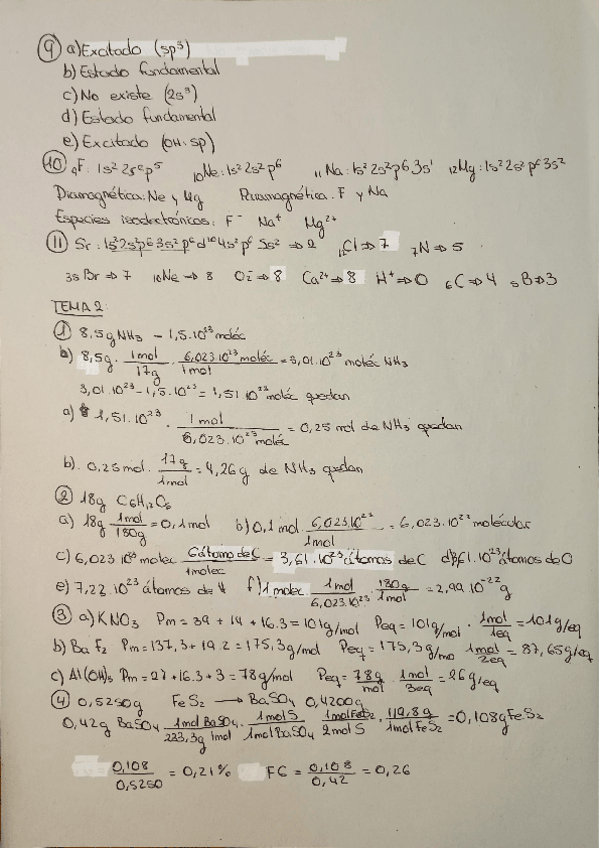 ⑨ a) Excitado (sp³)
b) Estado fundamental
c) No existe (2s³)
d) Estado fundamental
e) Excitado (OH·sp)
⑩ ₉F: 1s² 2s² p⁵ ₁₀Ne: 1s² 2s² p⁶ ₁₁Na: 1s² 2s² p⁶ 3s¹ ₁₂Mg: 1s² 2s² p⁶ 3s²
Diamagnética: Ne y Mg Paramagnética: F y Na
Especies isoelectrónicas: F⁻ Na⁺ Mg²⁺
⑪ Sr: 1s² 2s² p⁶ 3s² p⁶ d¹⁰ 4s² p⁶ 5s² ⇒ 2 ₁₇Cl ⇒ 7 ₇N ⇒ 5
₃₅Br ⇒ 7 ₁₀Ne → 8 O²⁻ ⇒ 8 Ca²⁺ ⇒ 8 H⁺ ⇒ 0 ₆C ⇒ 4 ₅B ⇒ 3
TEMA 2
① 8,5g NH₃ - 1,5·10²³ moléc
b) 8,5g · 1mol/17g · 6,023·10²³ moléc/1mol = 3,01·10²³ moléc NH₃
3,01·10²³ - 1,5·10²³ = 1,51·10²³ moléc quedan
a) 1,51·10²³ · 1mol/6,023·10²³ moléc = 0,25 mol de NH₃ quedan
b). 0,25mol · 17g/1mol = 4,26g de NH₃ quedan
② 18g C₆H₁₂O₆
a) 18g · 1mol/180g = 0,1mol b) 0,1 mol · 6,023·10²³/1mol = 6,023·10²² moléculas
c) 6,023·10²³ molec · 6 átomo de C/1molec = 3,61·10²³ átomos de C d) 3,61·10²³ átomos de O
e) 7,22·10²³ átomos de H f) 1 molec · 1mol/6,023·10²³ · 180g/1mol = 2,99·10⁻²² g
③ a) KNO₃ Pm = 39 + 14 + 16·3 = 101g/mol Peq = 101g/mol · 1mol/1eq = 101g/eq
b) BaF₂ Pm = 137,3 + 19·2 = 175,3g/mol Peq = 175,3g/mo · 1mol/2eq = 87,65g/eq
c) Al(OH)₃ Pm = 27 + 16·3 + 3 = 78g/mol Peq = 78g/mol · 1mol/3eq = 26g/eq
④ 0,5250g FeS₂ → BaSO₄ 0,4200g
0,42g BaSO₄ · 1mol BaSO₄/233,3g · 1mol S/1mol BaSO₄ · 1mol FeS₂/2mol S · 119,8g/1mol FeS₂ = 0,108g FeS₂
0,108/0,5250 = 0,21% FG = 0,108/0,42 = 0,26